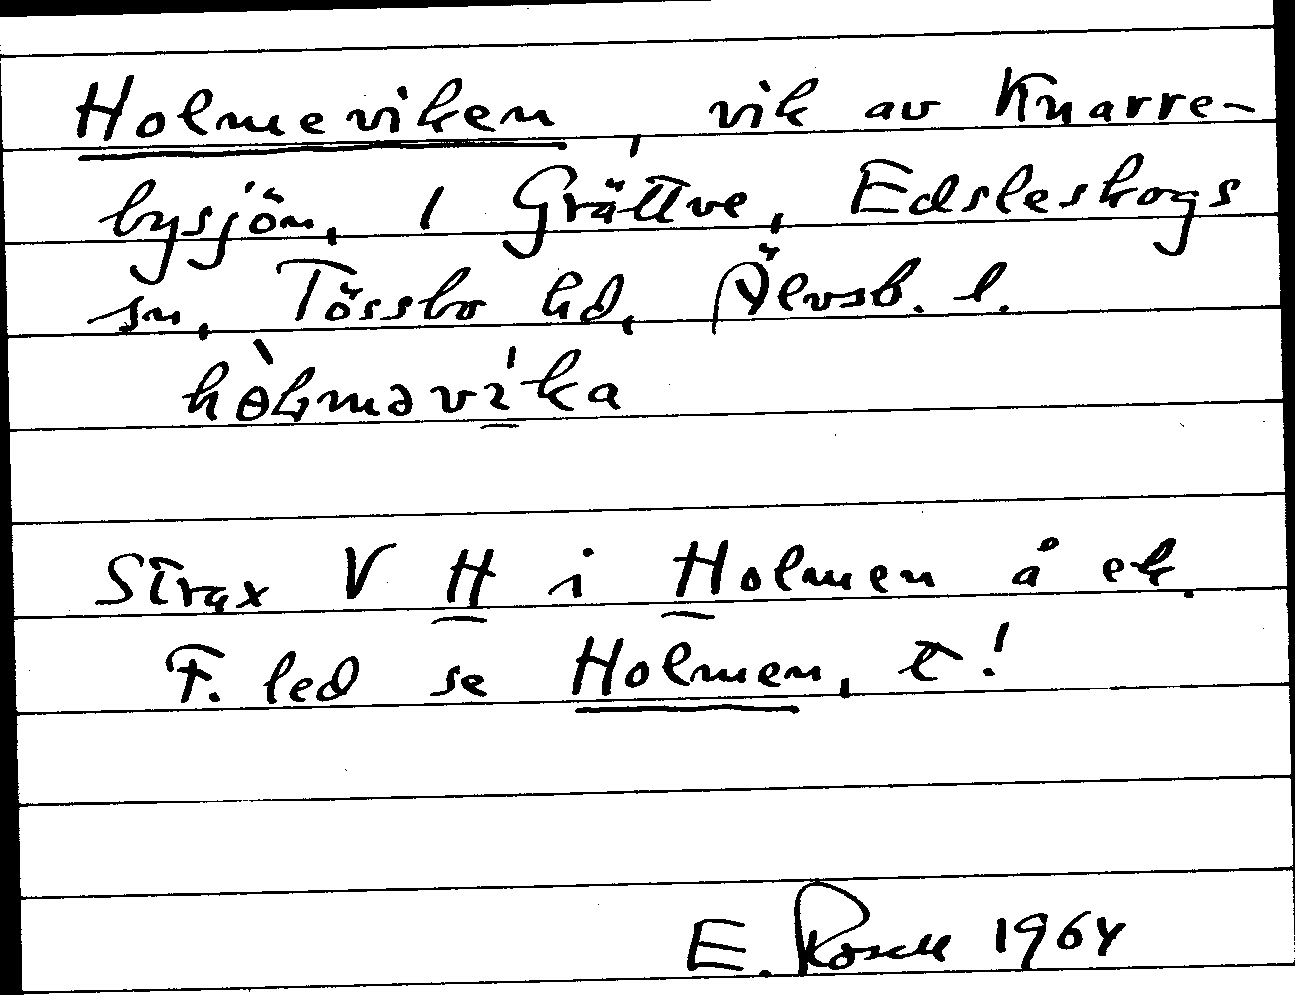 Holmeviken, vik av Knarre-
bysjön, 1 Grättve, Edsleskogs
sn, Tössbo hd, Älvsb. l.
hòlmavíka
Strax V H i Holmen å ek.
F. led se Holmen, t!
E. Rosell 1964